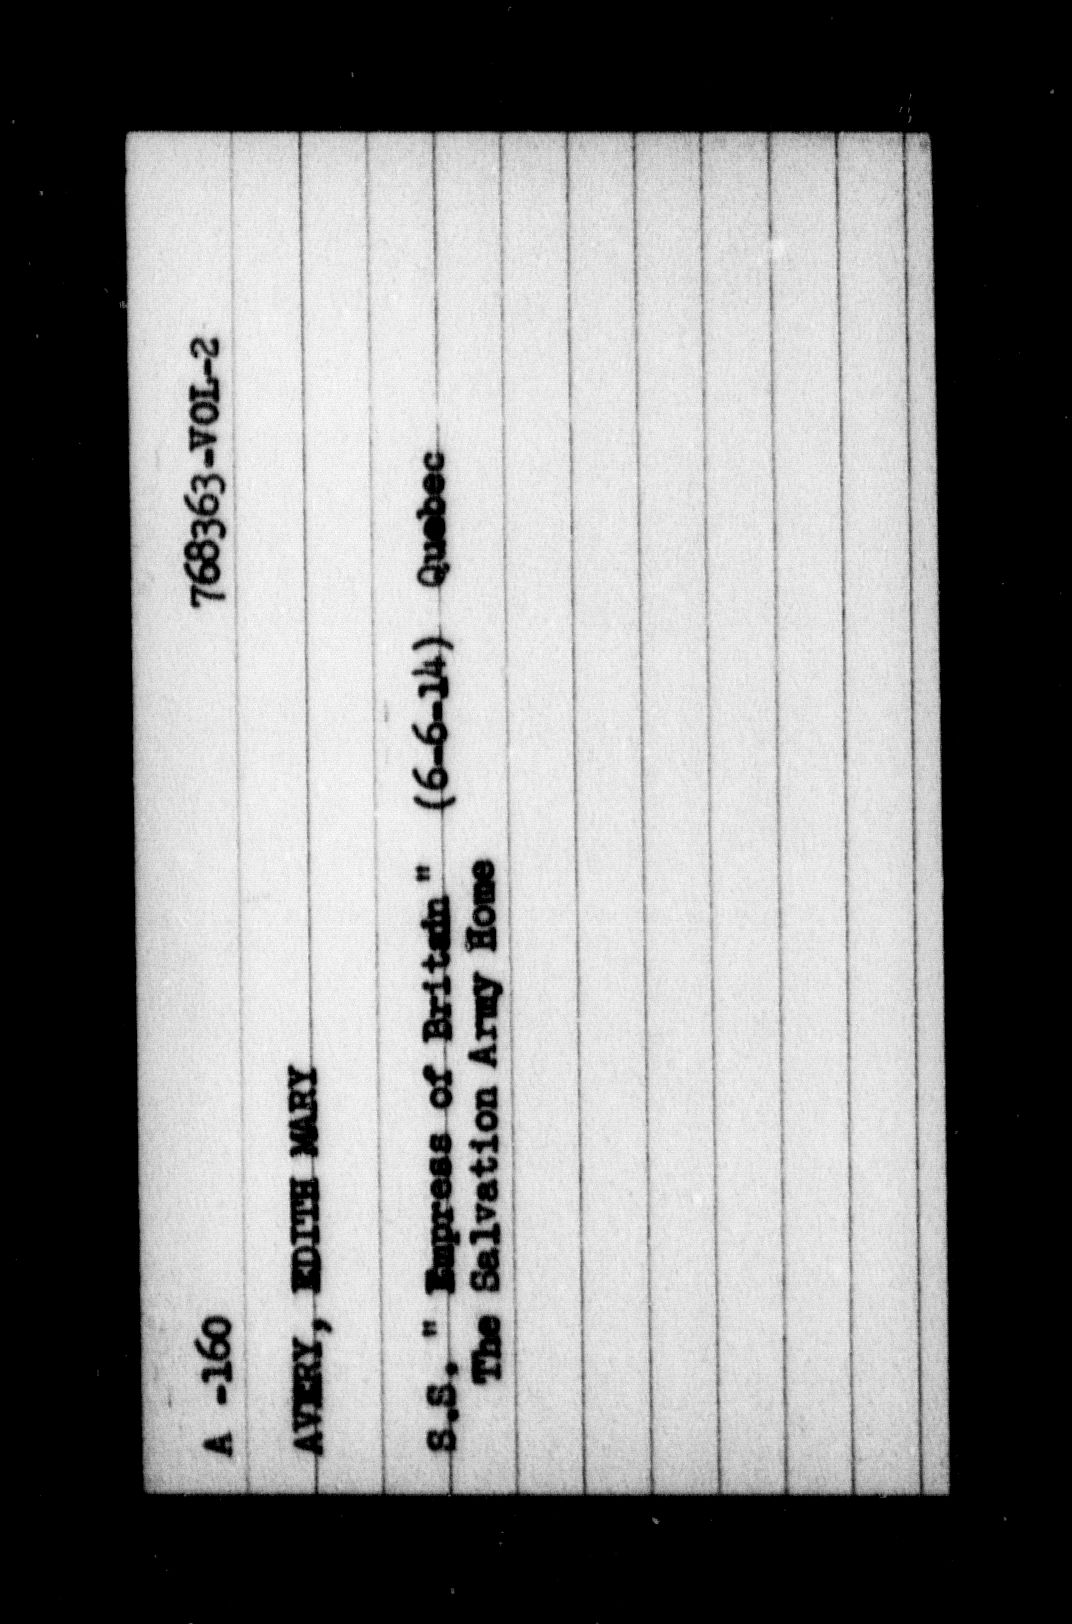 A -160 768363-VOL-2
AVERY, EDITH MARY
S.S. " Empress of Britain " (6-6-14) Quebec
The Salvation Army Home